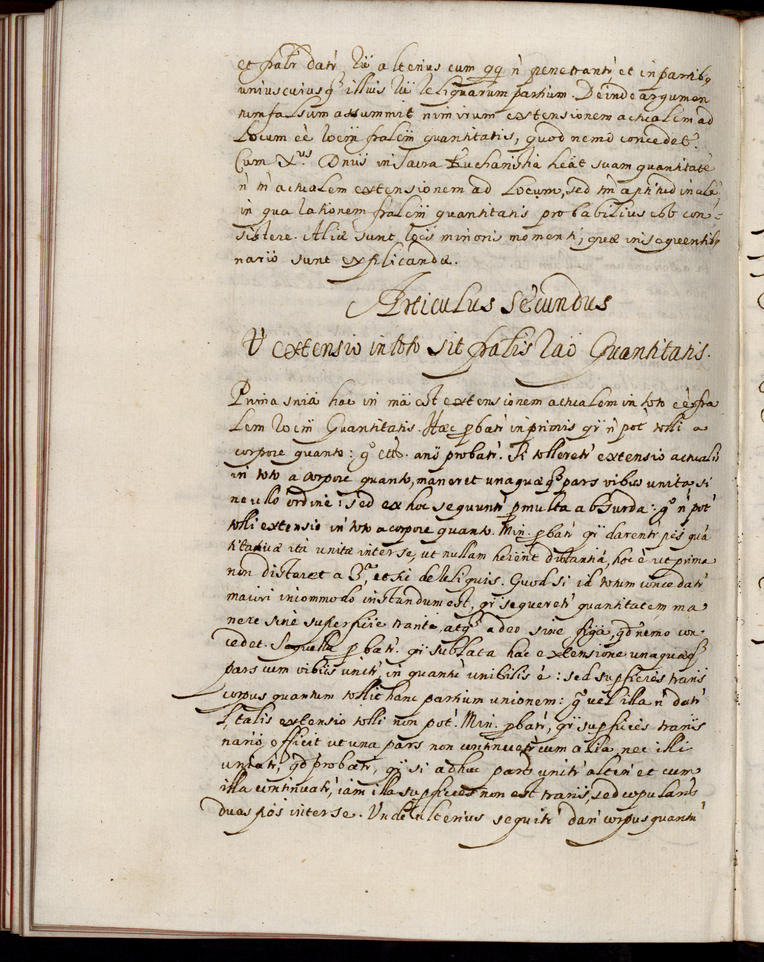 et datr altenus cum qq ñ penetrantr et in partib
uniuscuiusq illius reliquarum partium. Deinde argumen
tum falsum assummit nimirum extensionem actualem ad
Locum éé quantitatis, quod nemo concedet.
Cum Xus Dnus in Sacra Euchanistia heat suam quantitaté
ñ tñ actualem extensionem ad Locum, sed tm aptitudinalé
in qua rationem quantitatis probabilius con=
sistere. Aliæ sunt minoris momenti, quæ in seqventib
nario sunt explicandæ.
Articulus Secundus
V extensio in toto sit raõ Quantitatis.
Prima snia hac in mã est extensionem actualem in toto éé
lem Quantitatis. Hæc pbatr inprimis qr ñ pot tolli a
corpore quanto: gº etc. ans probatr. Si tolleretr extensio actualis
in toto a corpore quanto, maneret unaquæq pars vibus unita si
ne ullo ordine: sed ex hoc sequuntr pmulta absurda: gº ñ pot
tolli extensio in toto a corpore quanto. Min. pbatr qr darentr
titativæ ita unitæ inter se, ut nullam distantiã, hoc é ut prima
non distaret a 3ª, et sic de reliquis. Quod si id totum concedatr
maiori incommodo instandum est, qr sequeretr quantitatem ma
nere sine superficie atq adeo sine figa, qd nemo con
cedet. Sequella pbatr. qr sublata hac extensione unaquæq
pars cum vibus unitr, in quantu unibilis é: sed supficiés
corpus quantum tollit hanc partium unionem: gº vel illa ñ datr
l talis extensio tolli non pot. Min. pbatr, qr supficiés
efficit ut una pars non continuetr cum alia, nec illi
uniatr, qd probatr, qr si adhuc pars unitr alteri et cum
illa continuatr, iam illa supficiés non est sed copulans
duas inter se. Vnde ulterius sequitr dari corpus quantu